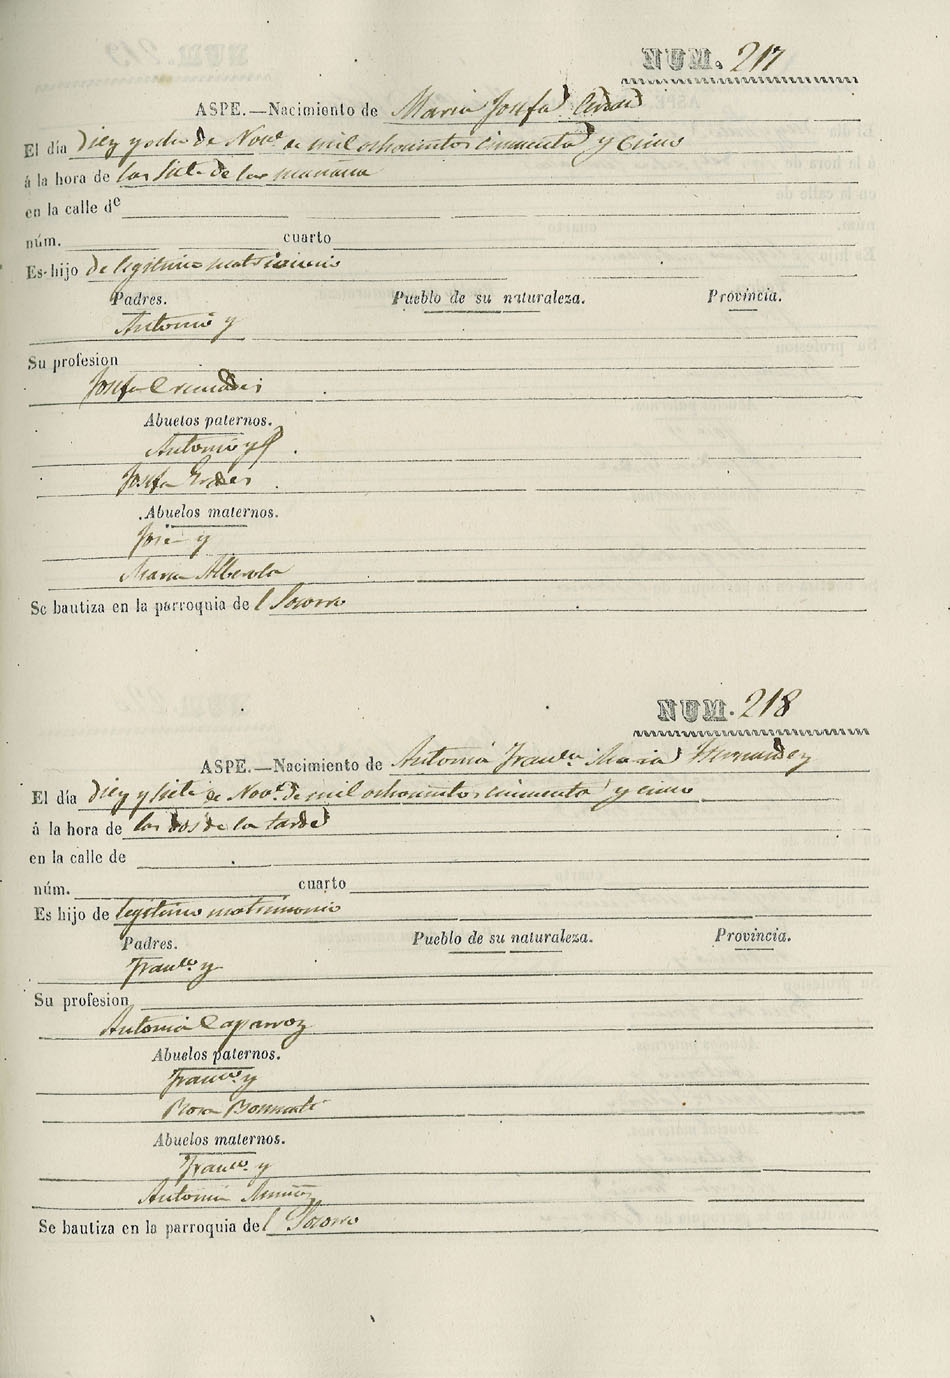 NUM. 217
ASPE.—Nacimiento de Maria Josefa
El día diez y ocho de Nove. de mil ochocientos cincuenta y cinco
á la hora de las siete de la mañana
en la calle de
núm. cuarto
Es hijo de legitimo matrimonio
Padres. Pueblo de su naturaleza. Provincia.
Antonio y
Su profesion
Josefa
Abuelos paternos.
Antonio y
Josefa
Abuelos maternos.
José y
Maria Alberola
Se bautiza en la parroquia del Socorro
NUM. 218
ASPE.—Nacimiento de Antonia Franca. Maria Hernandez
El día diez y siete de Nove. de mil ochocientos cincuenta y cinco
á la hora de las dos de la tarde
en la calle de
núm. cuarto
Es hijo de legitimo matrimonio
Padres. Pueblo de su naturaleza. Provincia.
Franco. y
Su profesion
Antonia Caparroz
Abuelos paternos.
Franco. y
Rosa Bonmati
Abuelos maternos.
Franco. y
Antonia Muñoz
Se bautiza en la parroquia del Socorro